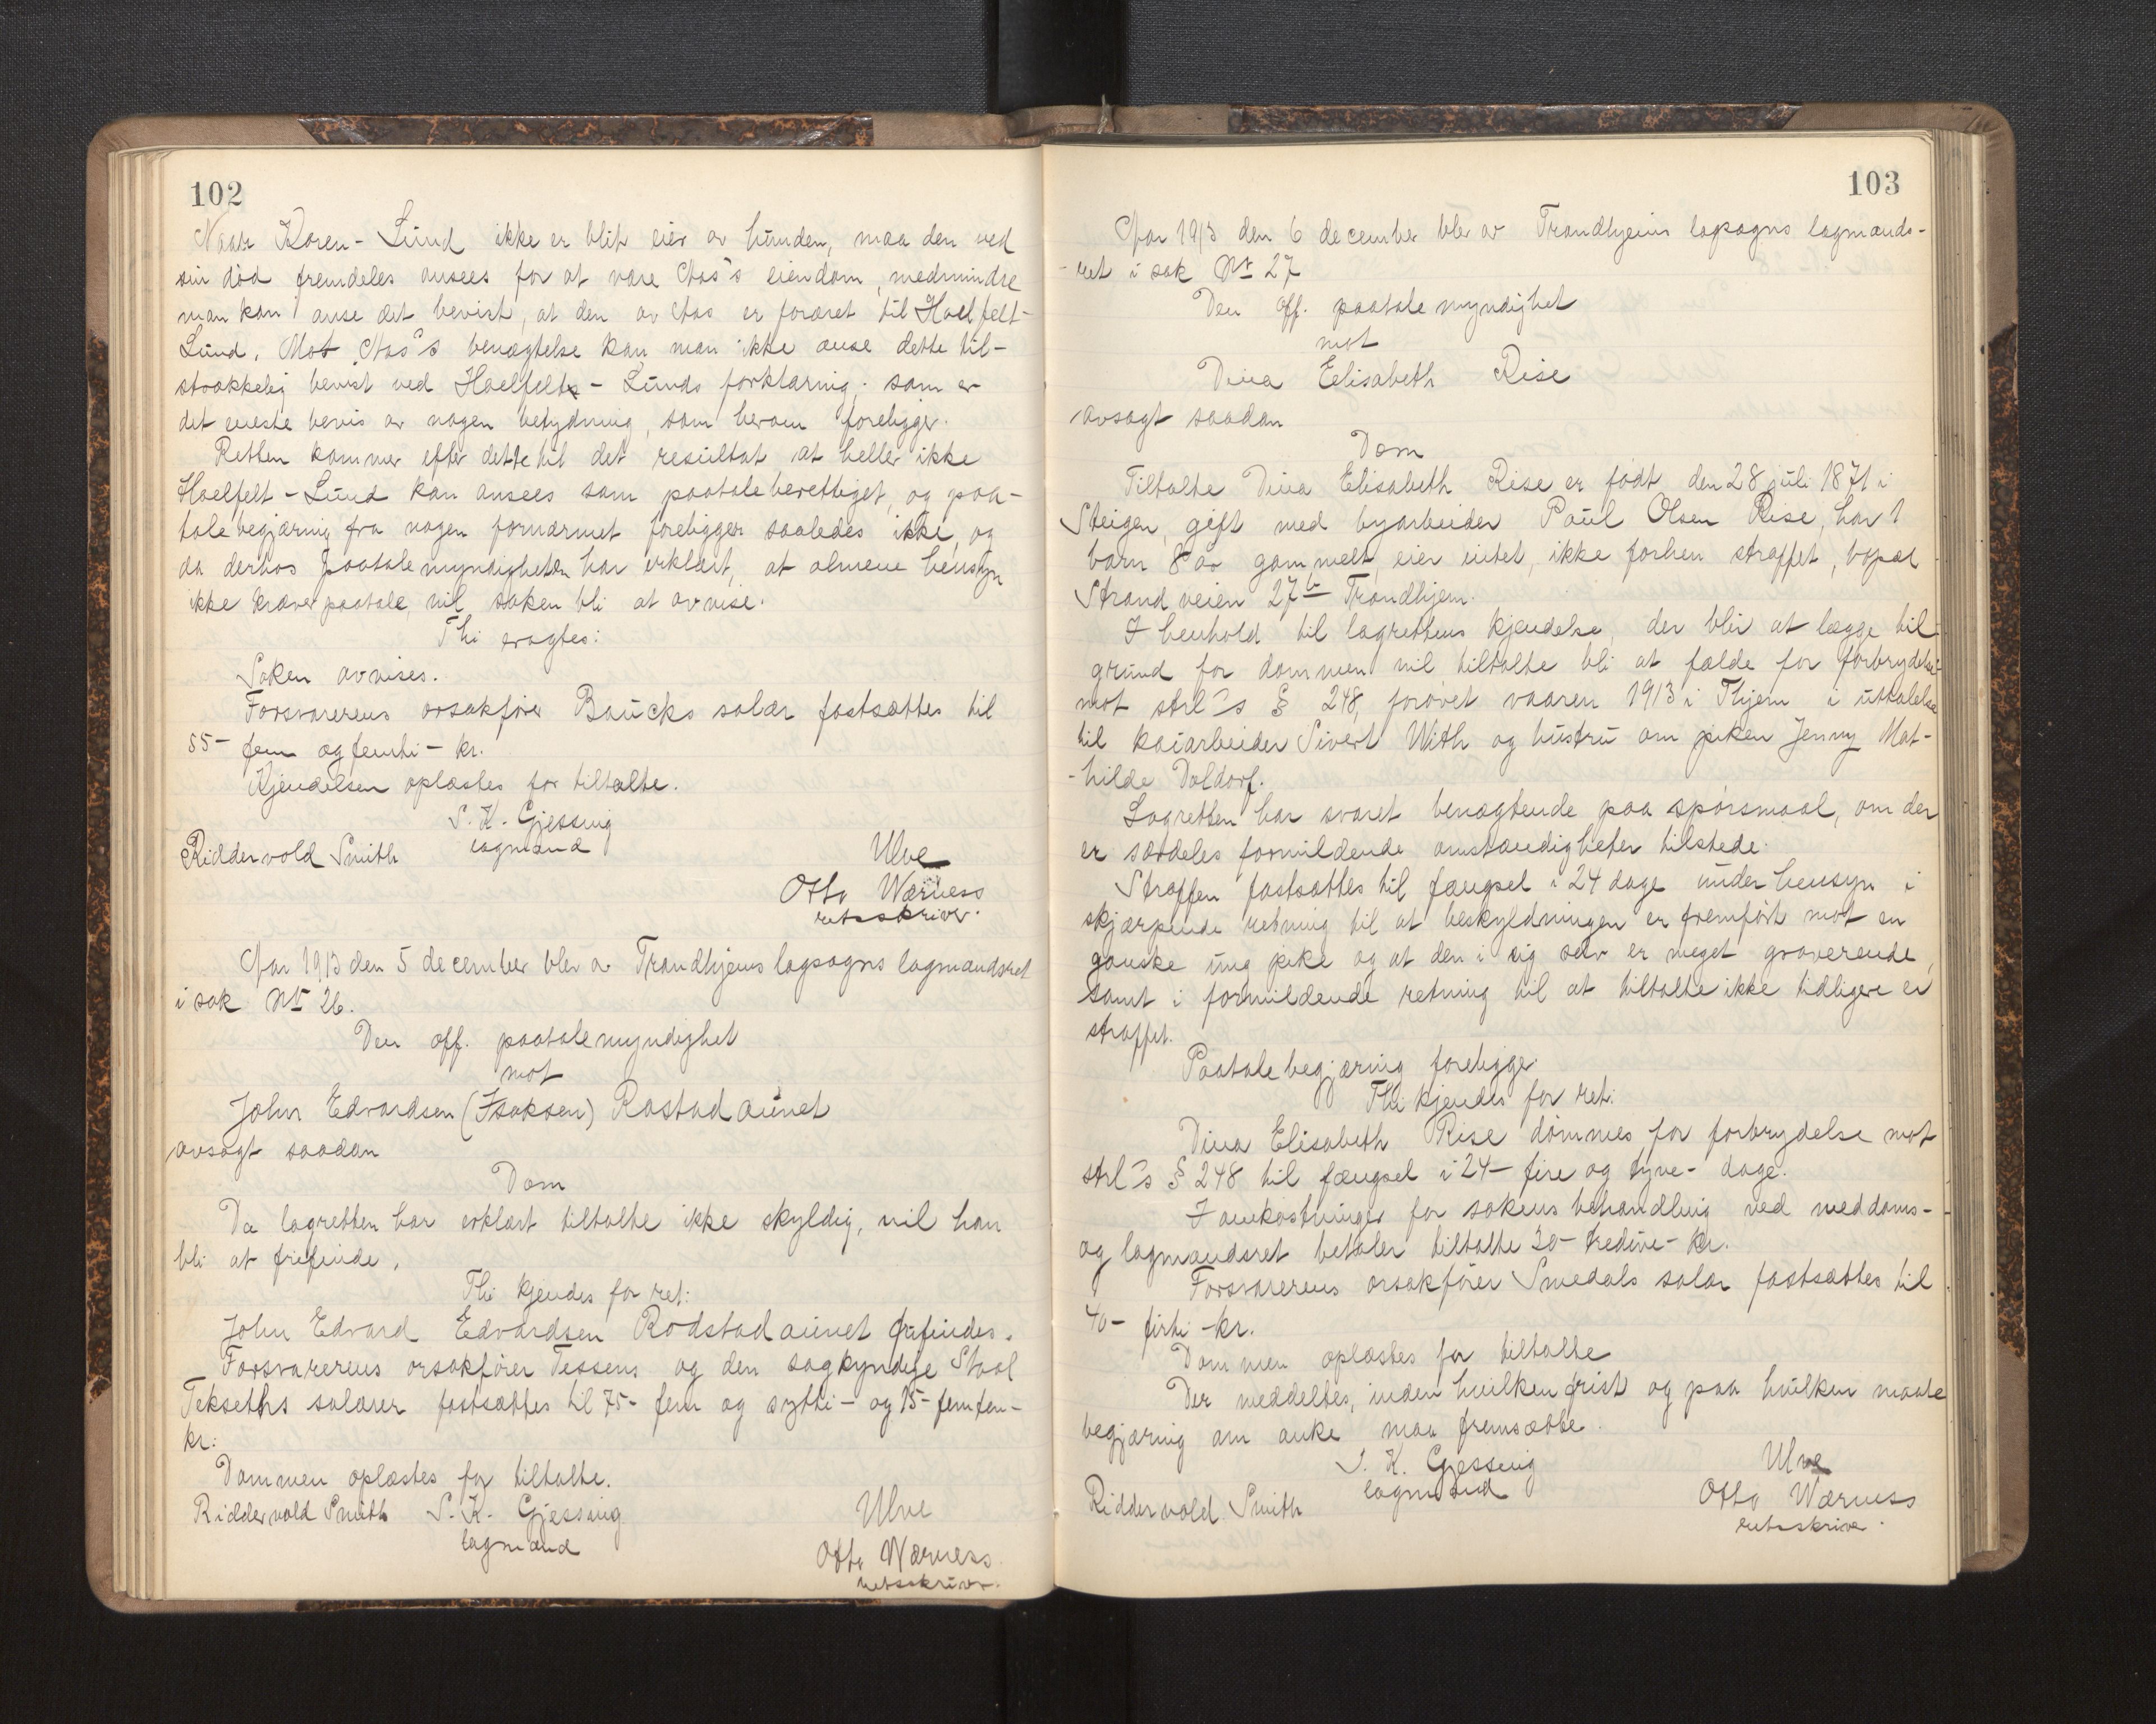 102
Naar Koren-Lund ikke er blit eier av hunden, maa den ved
sin död fremdeles ansees for at være Aas's eiendom, medmindre
man kan anse det bevist, at den av Aas er foræret til Haelfelt-
Lund. Mot Aas's benægtelse kan man ikke anse dette til-
strækkelig bevist ved Haelfelt-Lunds forklaring, som er
det eneste bevis av nogen betydning, som herom foreligger.
Retten kommer efter dette til det resultat at heller ikke
Haelfelt-Lund kan ansees som paataleberettiget, og paa-
talebegjæring fra nogen fornærmet foreligger saaledes ikke, og
da derhos paatalemyndigheten har erklært, at almene hensyn
ikke kræver paatale, vil saken bli at avvise.
Thi eragtes:
Saken avvises.
Forsvarerens orsakförer Baucks salær fastsættes til
55- fem og femti- kr.
Kjendelsen oplæstes for tiltalte.
S. K. Gjessing
Riddervold Smith lagmand Ulve
Otto Wærness
retsskriver.
Aar 1913 den 5 december blev av Trondhjems lagsogns lagmandsret
i sak Nr 26.
Den off. paatalemyndighet
mot
John Edvardsen (Isaksen) Rostadaunet
avsagt saadan
Dom
Da lagretten har erklært tiltalte ikke skyldig, vil han
bli at frifinde.
Thi kjendes for ret:
John Edvard Edvardsen Rodstadaunet frifindes.
Forsvarerens orsakförer Tessens og den sagkyndige Staal
Tekseths salærer fastsættes til 75- fem og sytti- og 15- femten-
kr.
Dommen oplæstes for tiltalte.
Riddervold Smith S. K. Gjessing Ulve
lagmand Otto Wærness
retsskriver.
103
Aar 1913 den 6 december blev av Trondhjems lagsogns lagmands-
-ret i sak Nr 27
Den off. paatalemyndighet
mot
Dina Elisabeth Rise
avsagt saadan
Dom
Tiltalte Dina Elisabeth Rise er födt den 28 juli 1871 i
Steigen, gift med byarbeider Paul Olsen Rise, har 1
barn 8 år gammelt, eier intet, ikke forhen straffet, bopæl
Strandveien 27b Trondhjem.
I henhold til lagrettens kjendelse, der blir at lægge til
grund for dommen vil tiltalte bli at fælde for forbrydelse
mot strl's § 248, forövet vaaren 1913 i Thjem i uttalelse
til kaiarbeider Sivert With og hustru om piken Jenny Mat-
-hilde Doldorf.
Lagretten har svaret benægtende paa spörsmaal, om der
er særdeles formildende omstændigheter tilstede.
Straffen fastsættes til fængsel i 24 dage under hensyn i
skjærpende retning til at beskyldningen er fremfört mot en
ganske ung pike og at den i sig selv er meget graverende,
samt i formildende retning til at tiltalte ikke tidligere er
straffet.
Paatalebegjæring foreligger.
Thi kjendes for ret:
Dina Elisabeth Rise dömmes for forbrydelse mot
strl's § 248 til fængsel i 24- fire og tyve- dage.
I omkostninger for sakens behandling ved meddoms-
og lagmandsret betaler tiltalte 30- tredive- kr.
Forsvarerens orsakförer Smedals salær fastsættes til
40- firti -kr.
Dommen oplæstes for tiltalte
Der meddeltes, inden hvilken frist og paa hvilken maate
begjæring om anke maa fremsættes.
S. K. Gjessing Ulve
Riddervold Smith lagmand Otto Wærness
retsskriver.